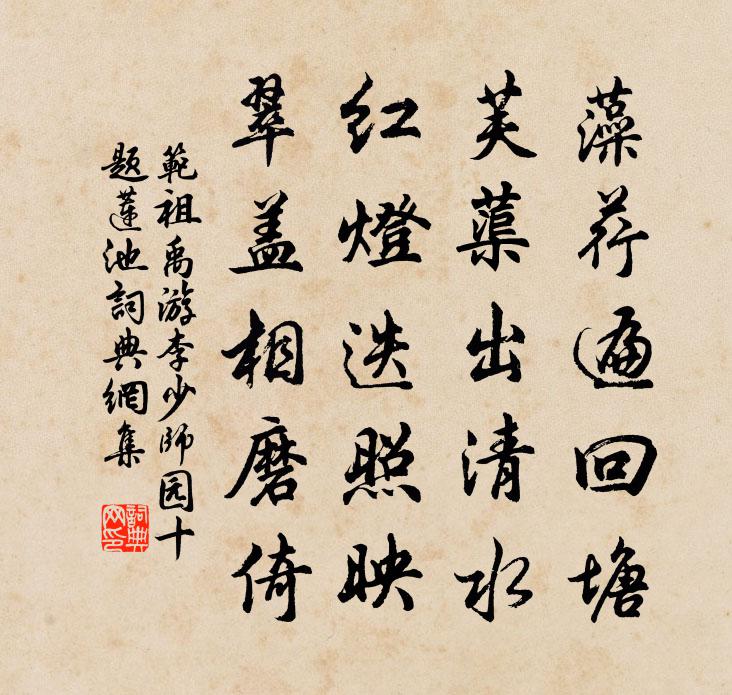 藻荇遍回塘
芙蕖出清水
红燈迭照映
翠盖相磨倚
範祖禹游李少師园十
题蓮池詞典網集
詞典网印